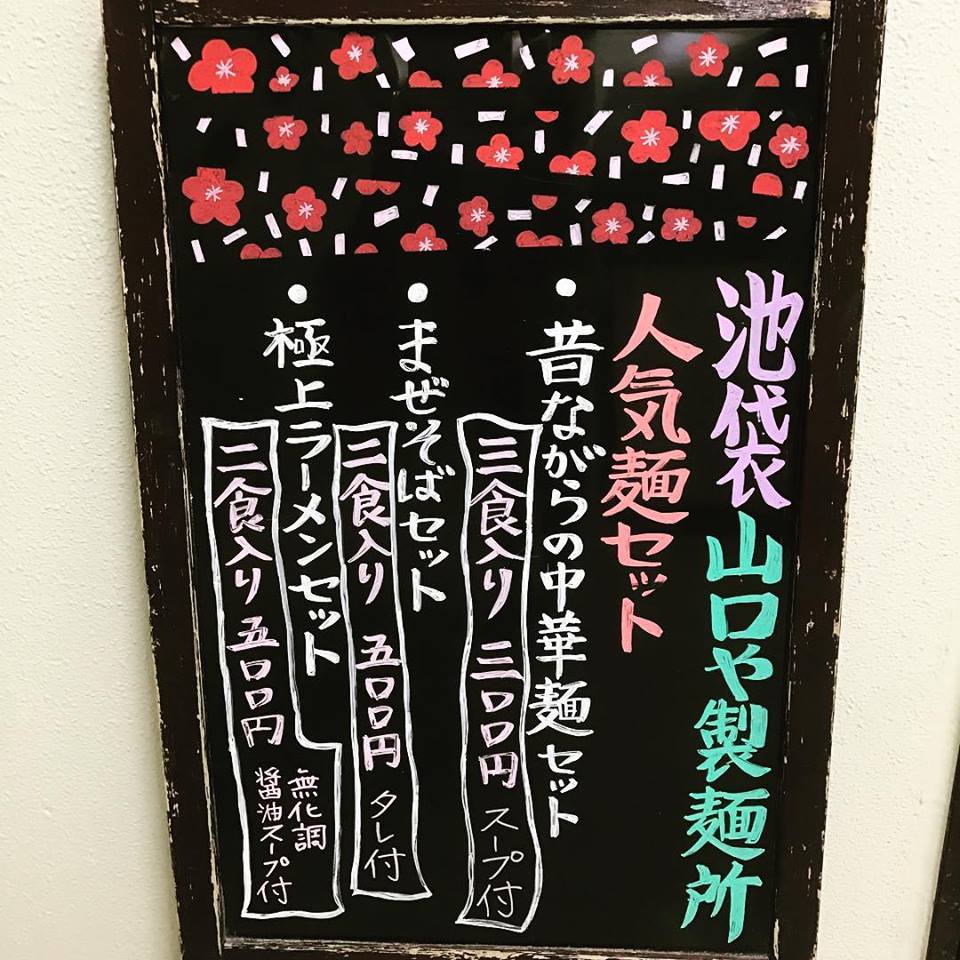 池袋山口や製麺所
人気麺セット
・昔ながらの中華麺セット
三食入り 三〇〇円 スープ付
・まぜそばセット
二食入り 五〇〇円 タレ付
・極上ラーメンセット
二食入り 五〇〇円 無化調
醤油スープ付